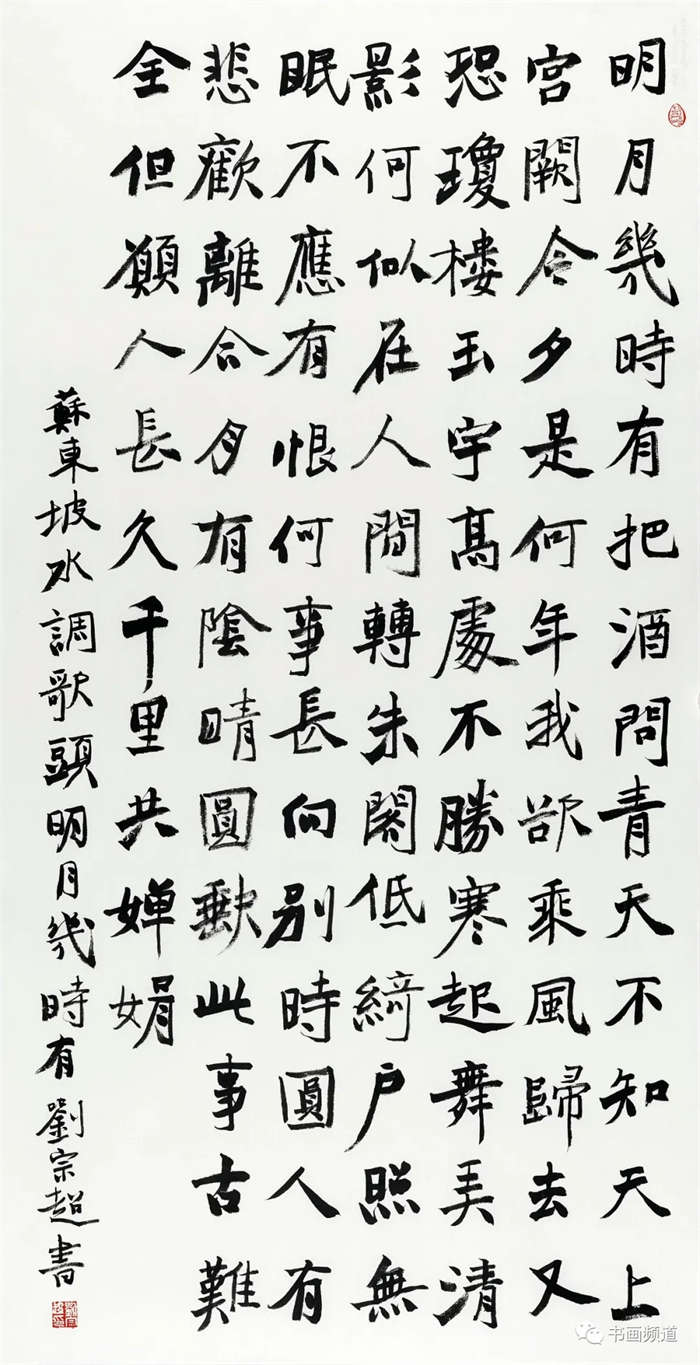 明月幾時有把酒問青天不知天上
宮闕今夕是何年我欲乘風歸去又
恐瓊樓玉宇高處不勝寒起舞弄清
影何似在人間轉朱閣低綺戶照無
眠不應有恨何事長向別時圓人有
悲歡離合月有陰晴圓缺此事古難
全但願人長久千里共嬋娟
蘇東坡水調歌頭明月幾時有劉宗超書
书画频道